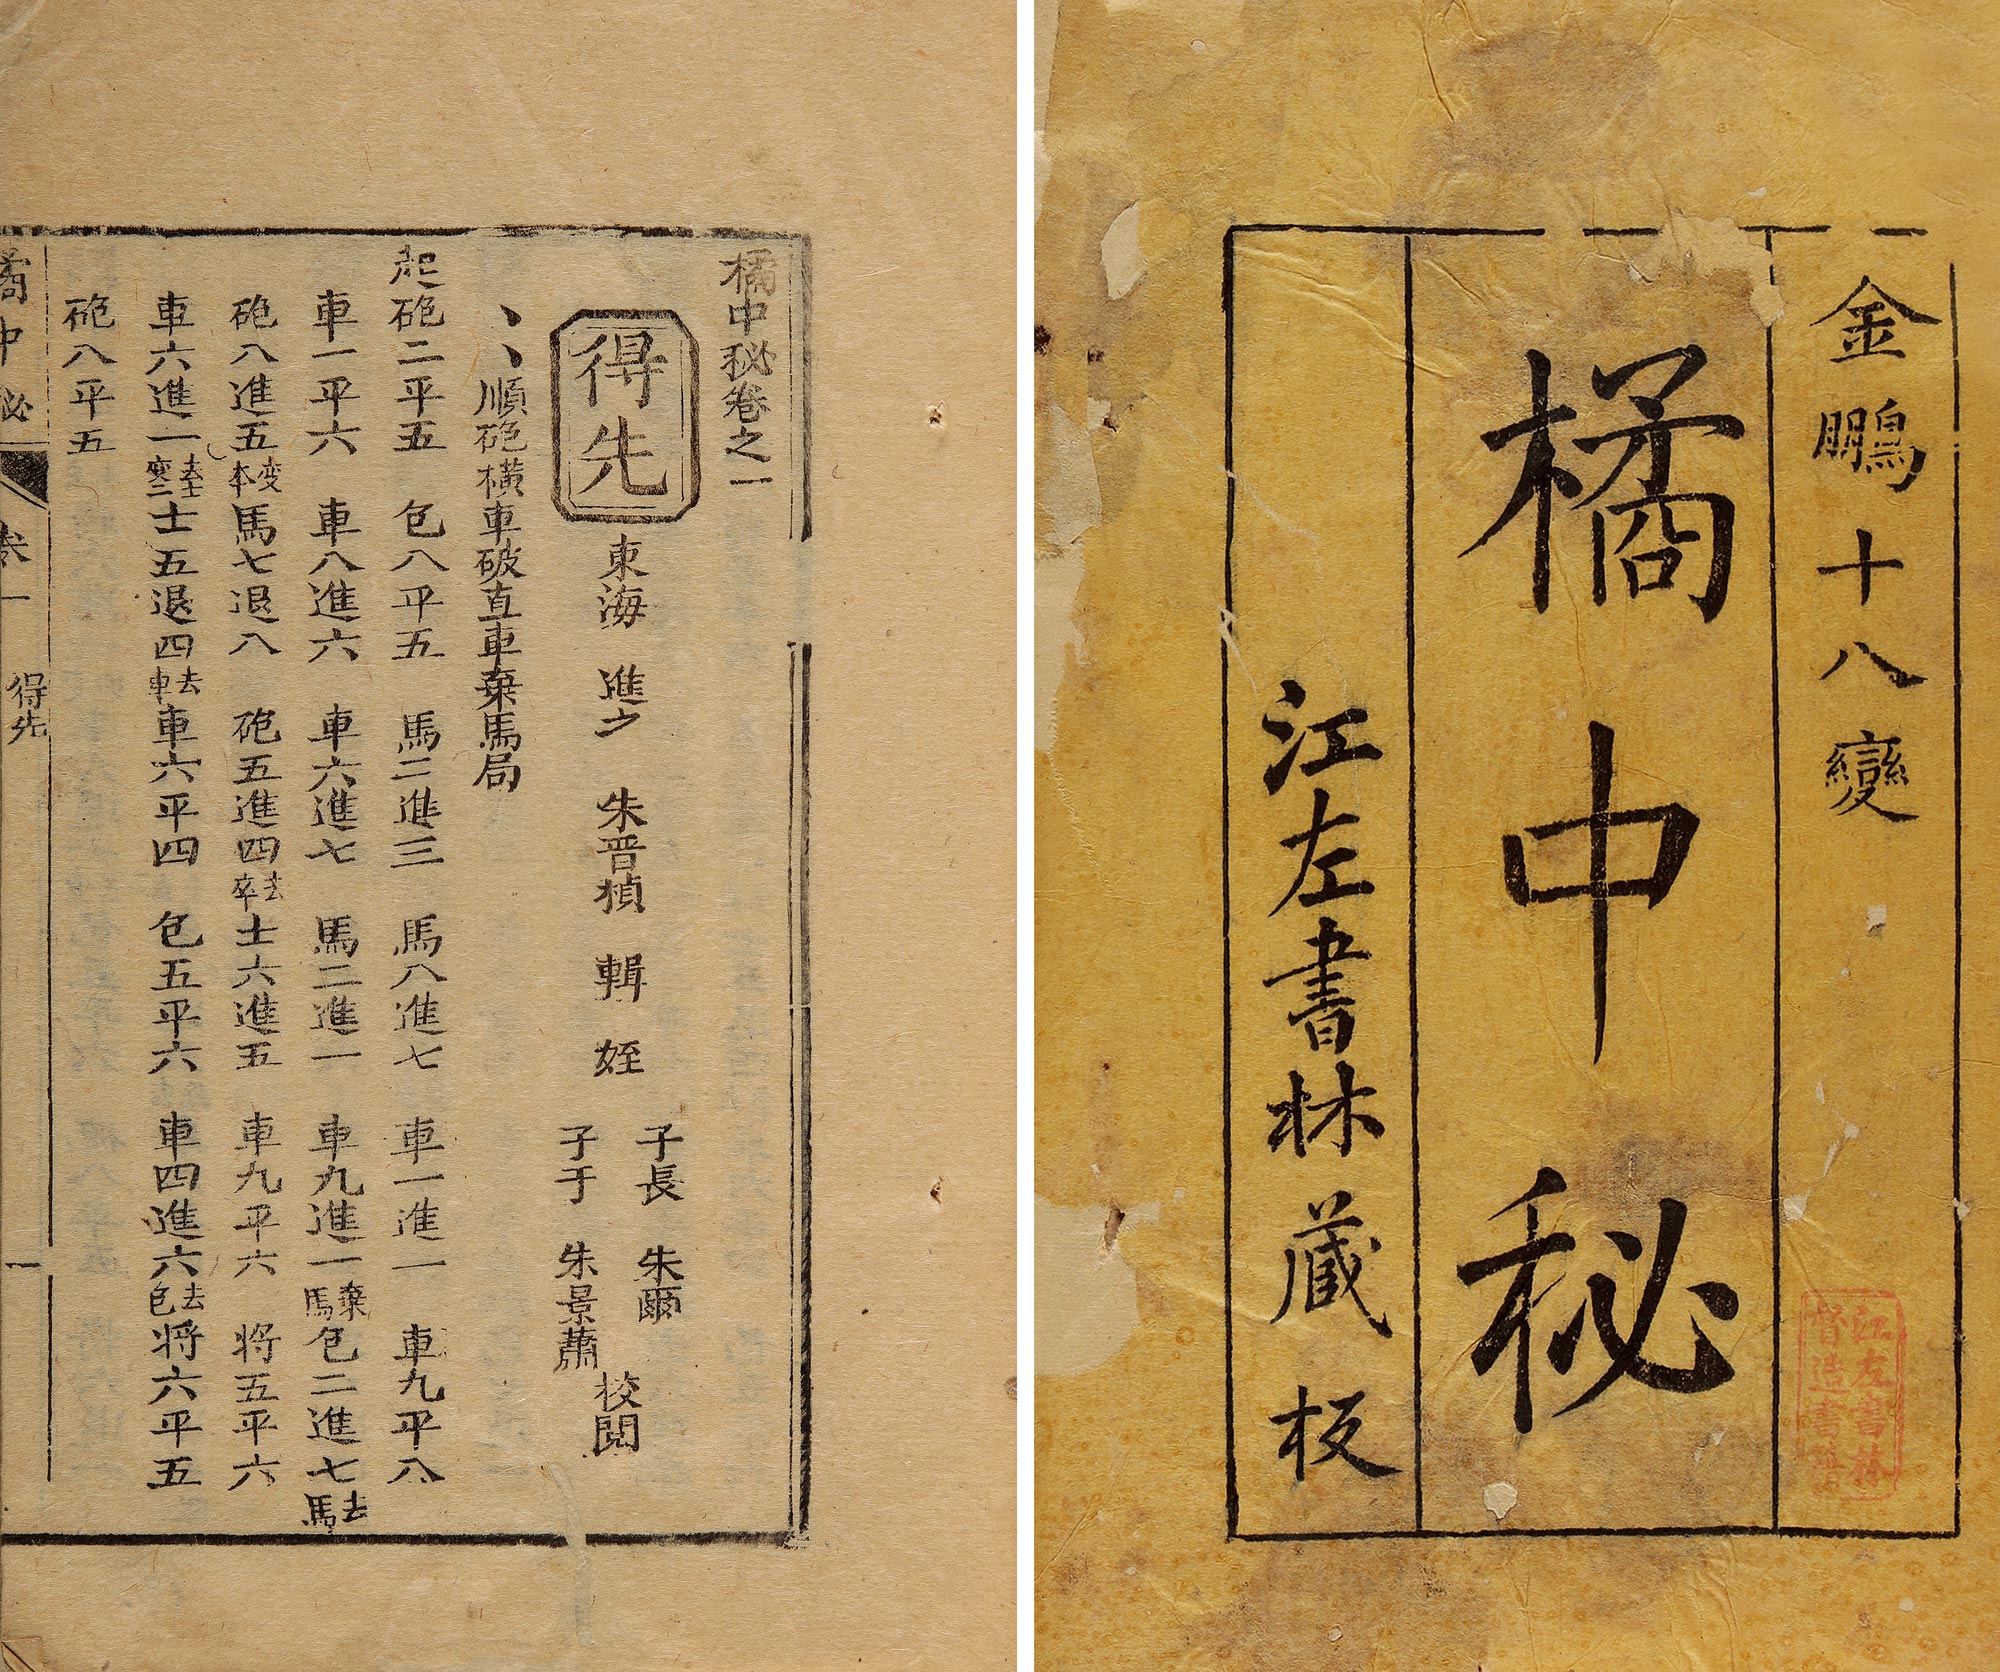 金鵬十八變
橘中秘
江左書林藏板
江左書林
督造書籍
橘中秘卷之一
得先
東海 進之 朱晋楨 輯 姪 子長 朱爾 子于 朱景蕭 校閱
順砲橫車破直車棄馬局
起砲二平五 包八平五 馬二進三 馬八進七 車一進一 車九平八
車一平六 車八進六 車六進七 馬二進一 車九進一棄馬 包二進七去馬
砲八進五变本 馬七退八 砲五進四去卒 士六進五 車九平六 将五平六
車六進一 士五退四去車 車六平四 包五平六 車四進六去包 将六平五
砲八平五
橘中秘 卷一 得先 一